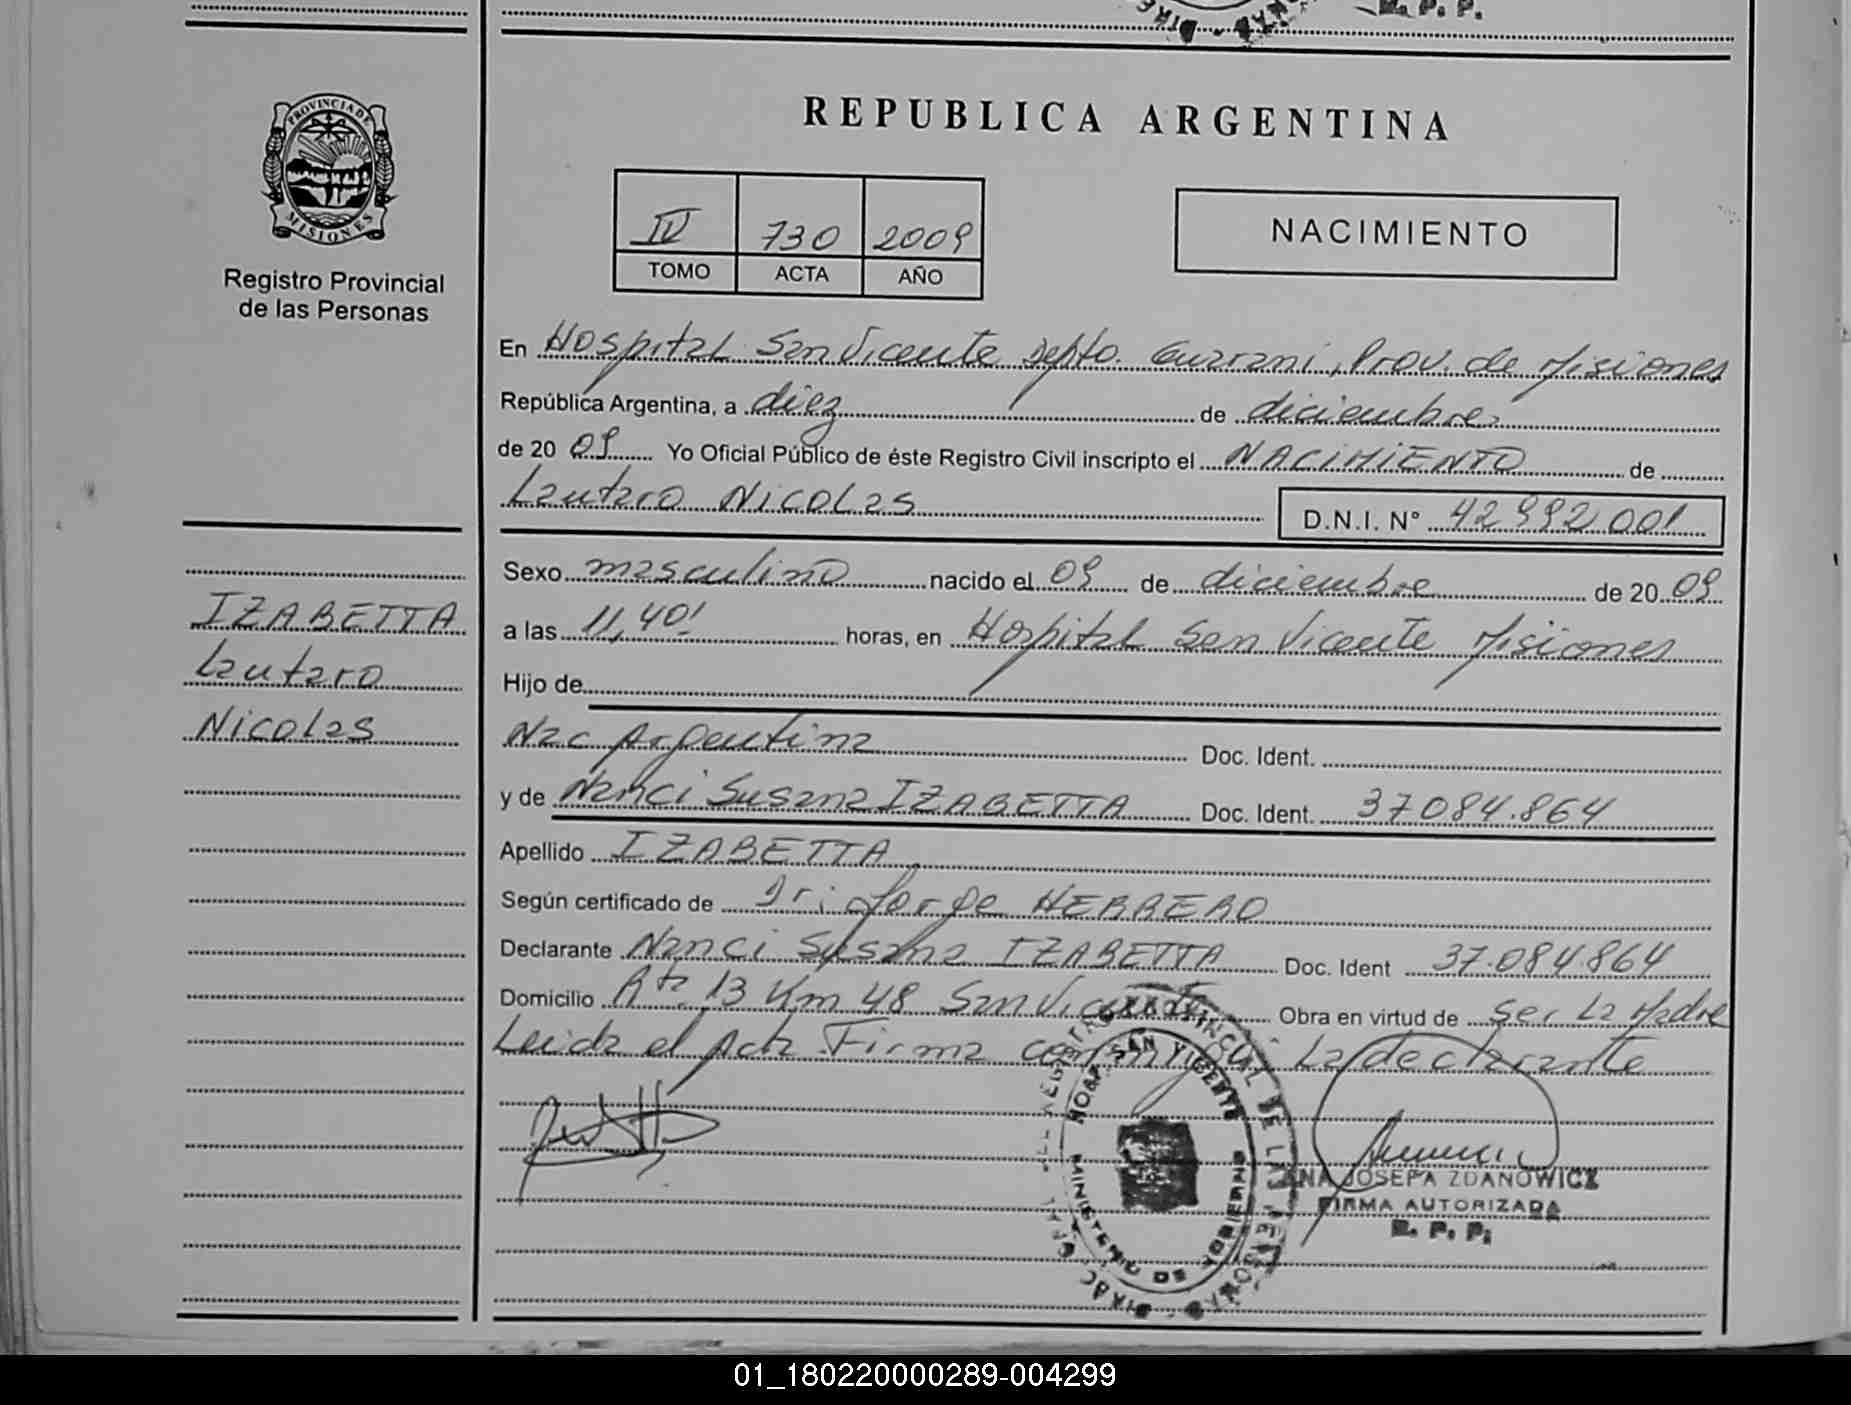 R. P. P.
PROVINCIA DE
MISIONES
Registro Provincial
de las Personas
REPUBLICA ARGENTINA
IV 730 2009
TOMO ACTA AÑO
NACIMIENTO
En Hospital San Vicente Depto. Guarani, Prov. de Misiones
República Argentina, a diez de diciembre
de 20 09 Yo Oficial Público de éste Registro Civil inscripto el NACIMIENTO de
Lautaro Nicolas D.N.I. N° 42992001
Sexo masculino nacido el 09 de diciembre de 20 09
a las 11,40' horas, en Hospital San Vicente Misiones
Hijo de
Nac Argentina Doc. Ident.
y de Nanci Susana IZABETTA Doc. Ident. 37.084.864
Apellido IZABETTA
Según certificado de Dr: Jorge HERRERO
Declarante Nanci Susana IZABETTA Doc. Ident 37.084.864
Domicilio Rta 13 Km 48 San Vicente Obra en virtud de ser La Madre
Leida el Acta Firma conmigo La declarante
IZABETTA
Lautaro
Nicolas
REGISTRO PROVINCIAL DE LAS PERSONAS
HOSP. SAN VICENTE
MINISTERIO DE GOBIERNO
ANA JOSEFA ZDANOWICZ
FIRMA AUTORIZADA
R. P. P.
01_180220000289-004299